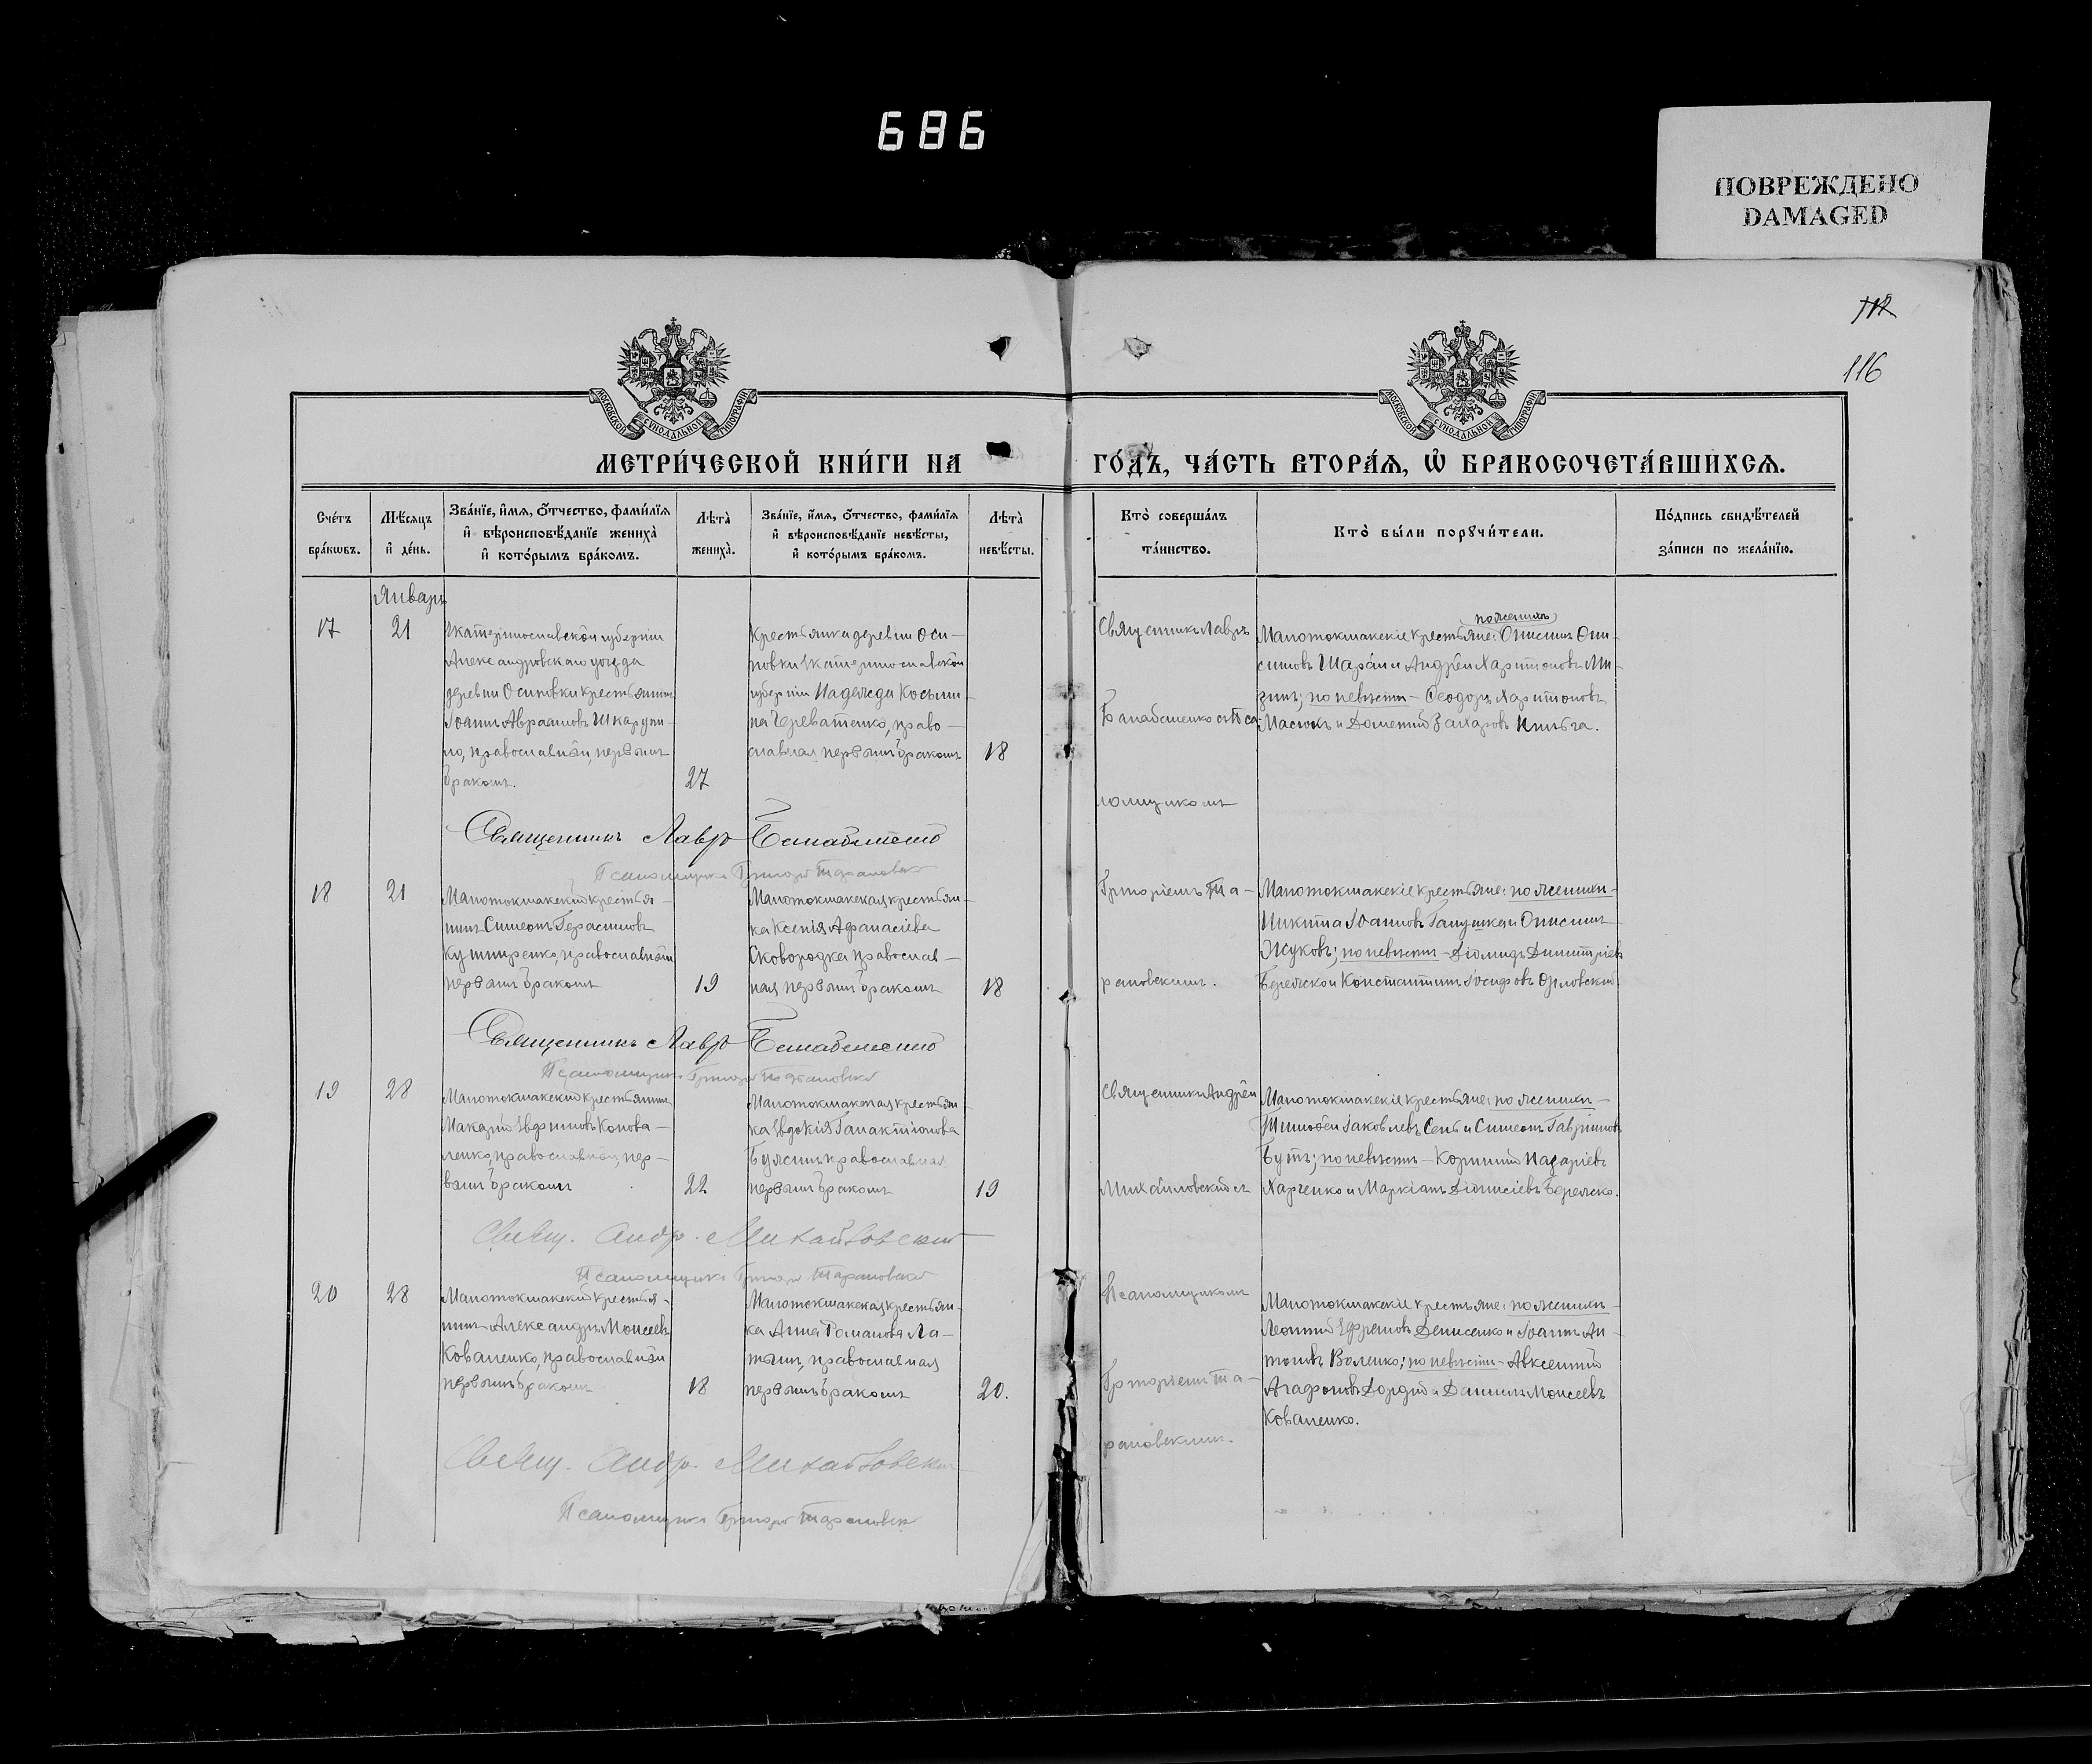 686
ПОВРЕЖДЕНО
DAMAGED
112
116
МОСКОВСКОЙ СУНОДАЛЬНОЙ ТИПОГРАФІИ
МОСКОВСКОЙ СУНОДАЛЬНОЙ ТИПОГРАФІИ
МЕТРИ́ЧЕСКОЙ КНИ́ГИ НА ГО́ДЪ, ЧА́СТЬ ВТОРА́Ѧ, Ѡ҆ БРАКОСОЧЕТА́ВШИХСѦ.
Сче́тъ
бра́кѡвъ.
Мѣ́сяцъ
и҆ де́нь.
Зва́нїе, и҆́мѧ, ѻ҆́тчество, фами́лїѧ
и҆ вѣроисповѣ́данїе жениха̀
и҆ кото́рымъ бра́комъ.
Лѣта̀
жениха̀.
Зва́нїе, и҆́мѧ, ѻ҆́тчество, фами́лїѧ
и҆ вѣроисповѣ́данїе невѣ́сты,
и҆ кото́рымъ бра́комъ.
Лѣта̀
невѣ́сты.
Кто̀ соверша́лъ
та́инство.
Кто̀ бы́ли порꙋчи́тели.
По́дпись свидѣ́телей
за́писи по жела́нїю.
Январь
17
21
Екатеринославской губерніи
Александровскаго уѣзда
деревни Осиповки крестьянинъ
Іоаннъ Авраамовъ Шкарупи-
ло, православный, первымъ
бракомъ.
27
Крестьянка деревни Оси-
повки Екатеринославской
губерніи Надежда Косьми-
на Череватенко, право-
славная первымъ бракомъ
18
Священникъ Лавръ
Балабаненко съ Пса-
ломщикомъ
по женихѣ
Малотокмакскіе крестьяне: Онисимъ Они-
симовъ Шарай и Андрей Харитоновъ Ми-
зинъ; по невѣстѣ - Ѳеодоръ Харитоновъ
Масюкъ и Дометій Захаровъ
Священникъ Лавр
Псаломщикъ Григорій Тарановскій
18
21
Малотокмакскій крестья-
нинъ Симеонъ Герасимовъ
Кушниренко, православный
первымъ бракомъ
19
Малотокмакская крестьян-
ка Ксенія Афанасіева
Сковородка православ-
ная первымъ бракомъ
18
Григоріемъ Та-
рановскимъ.
Малотокмакскіе крестьяне: по женихѣ -
Никита Іоанновъ Галушка и Онисимъ
Жуковъ; по невѣстѣ - Діомидъ Димитріевъ
Бережской Константинъ Іосифовъ Орловскій.
Священникъ Лавр
Псаломщикъ Григорій Тарановскій
19
28
Малотокмакскій крестьянинъ
Макарій Евфимовъ Конова-
ленко, православный, пер-
вымъ бракомъ
22
Малотокмакская крестьян-
ка Евдокія Галактіонова
православная
первымъ бракомъ
19
Священникъ Андрей
Михайловскій съ
Малотокмакскіе крестьяне: по женихѣ -
Тимоѳей Іаковлевъ Сень и Симеонъ Гавріиловъ
Бутъ; по невѣстѣ - Корнилій Назаріевъ
Харченко и Маркіанъ Діонисіевъ
Свящ. Андр. Михайловскій
Псаломщикъ Григорій Тарановскій
20
28
Малотокмакскій крестья-
нинъ Александръ Моисеевъ
Коваленко, православный
первымъ бракомъ
18
Малотокмакская крестьян-
ка Анна Романова Ла-
тышъ, православная
первымъ бракомъ
20.
Псаломщикомъ
Григоріемъ Та-
рановскимъ.
Малотокмакскіе крестьяне: по женихѣ -
Леонтій Ефремовъ Денисенко и Іоаннъ Ан-
тоновъ Воленко; по невѣстѣ - Авксентій
Агафоновъ и Даніилъ Моисеевъ
Коваленко.
Свящ. Андр. Михайловскій
Псаломщикъ Григорій Тарановскій